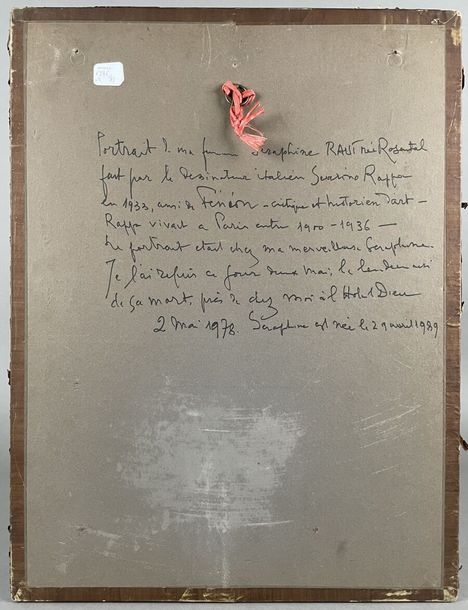 Portrait de ma femme Seraphine RAUT née Rosental
fait par le dessinateur italien Severino Rappa
en 1933, ami de Fénéon - critique et historien d'art -
Rappa vivait à Paris entre 1900 - 1936 -
Le portrait etait chez ma merveilleuse Seraphine.
Je l'ai ce jour deux mai, le lendemain
de sa mort, près de chez moi à l'Hotel Dieu
2 Mai 1978. Seraphine est née le 29 avril 1989